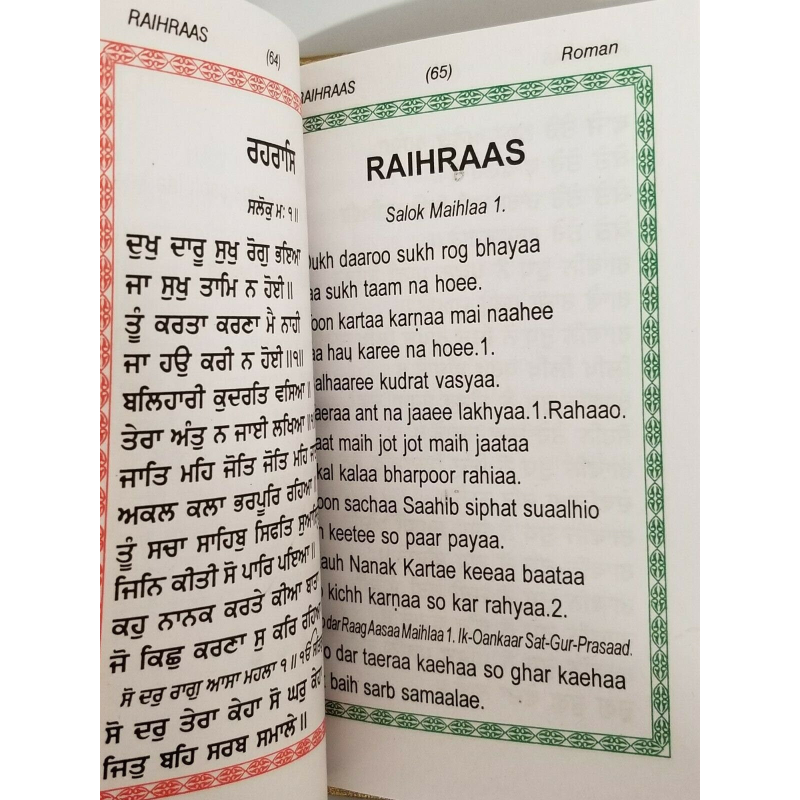 RAIHRAAS
(64)
ਰਹਰਾਸਿ
ਸਲੋਕੁ ਮਃ ੧॥
ਦੁਖੁ ਦਾਰੂ ਸੁਖੁ ਰੋਗੁ ਭਇਆ
ਜਾ ਸੁਖੁ ਤਾਮਿ ਨ ਹੋਈ॥
ਤੂੰ ਕਰਤਾ ਕਰਣਾ ਮੈ ਨਾਹੀ
ਜਾ ਹਉ ਕਰੀ ਨ ਹੋਈ॥੧॥
ਬਲਿਹਾਰੀ ਕੁਦਰਤਿ ਵਸਿਆ
ਤੇਰਾ ਅੰਤੁ ਨ ਜਾਈ ਲਖਿਆ
ਜਾਤਿ ਮਹਿ ਜੋਤਿ ਜੋਤਿ ਮਹਿ
ਅਕਲ ਕਲਾ ਭਰਪੂਰਿ ਰਹਿਆ
ਤੂੰ ਸਚਾ ਸਾਹਿਬੁ ਸਿਫਤਿ
ਜਿਨਿ ਕੀਤੀ ਸੋ ਪਾਰਿ ਪਇਆ॥
ਕਹੁ ਨਾਨਕ ਕਰਤੇ ਕੀਆ ਬਾਤਾ
ਜੋ ਕਿਛੁ ਕਰਣਾ ਸੁ ਕਰਿ ਰਹਿਆ
ਸੋ ਦਰੁ ਰਾਗੁ ਆਸਾ ਮਹਲਾ ੧॥
ਸੋ ਦਰੁ ਤੇਰਾ ਕੇਹਾ ਸੋ ਘਰੁ ਕੇਹਾ
ਜਿਤੁ ਬਹਿ ਸਰਬ ਸਮਾਲੇ॥
RAIHRAAS (65) Roman
RAIHRAAS
Salok Maihlaa 1.
Dukh daaroo sukh rog bhayaa
aa sukh taam na hoee.
oon kartaa karṇaa mai naahee
aa hau karee na hoee.1.
alhaaree kudrat vasyaa.
aeraa ant na jaaee lakhyaa.1.Rahaao.
aat maih jot jot maih jaataa
kal kalaa bharpoor rahiaa.
oon sachaa Saahib siphat suaalhio
keetee so paar payaa.
auh Nanak Kartae keeaa baataa
kichh karṇaa so kar rahyaa.2.
o dar Raag Aasaa Maihlaa 1. Ik-Oankaar Sat-Gur-Prasaad.
o dar taeraa kaehaa so ghar kaehaa
baih sarb samaalae.